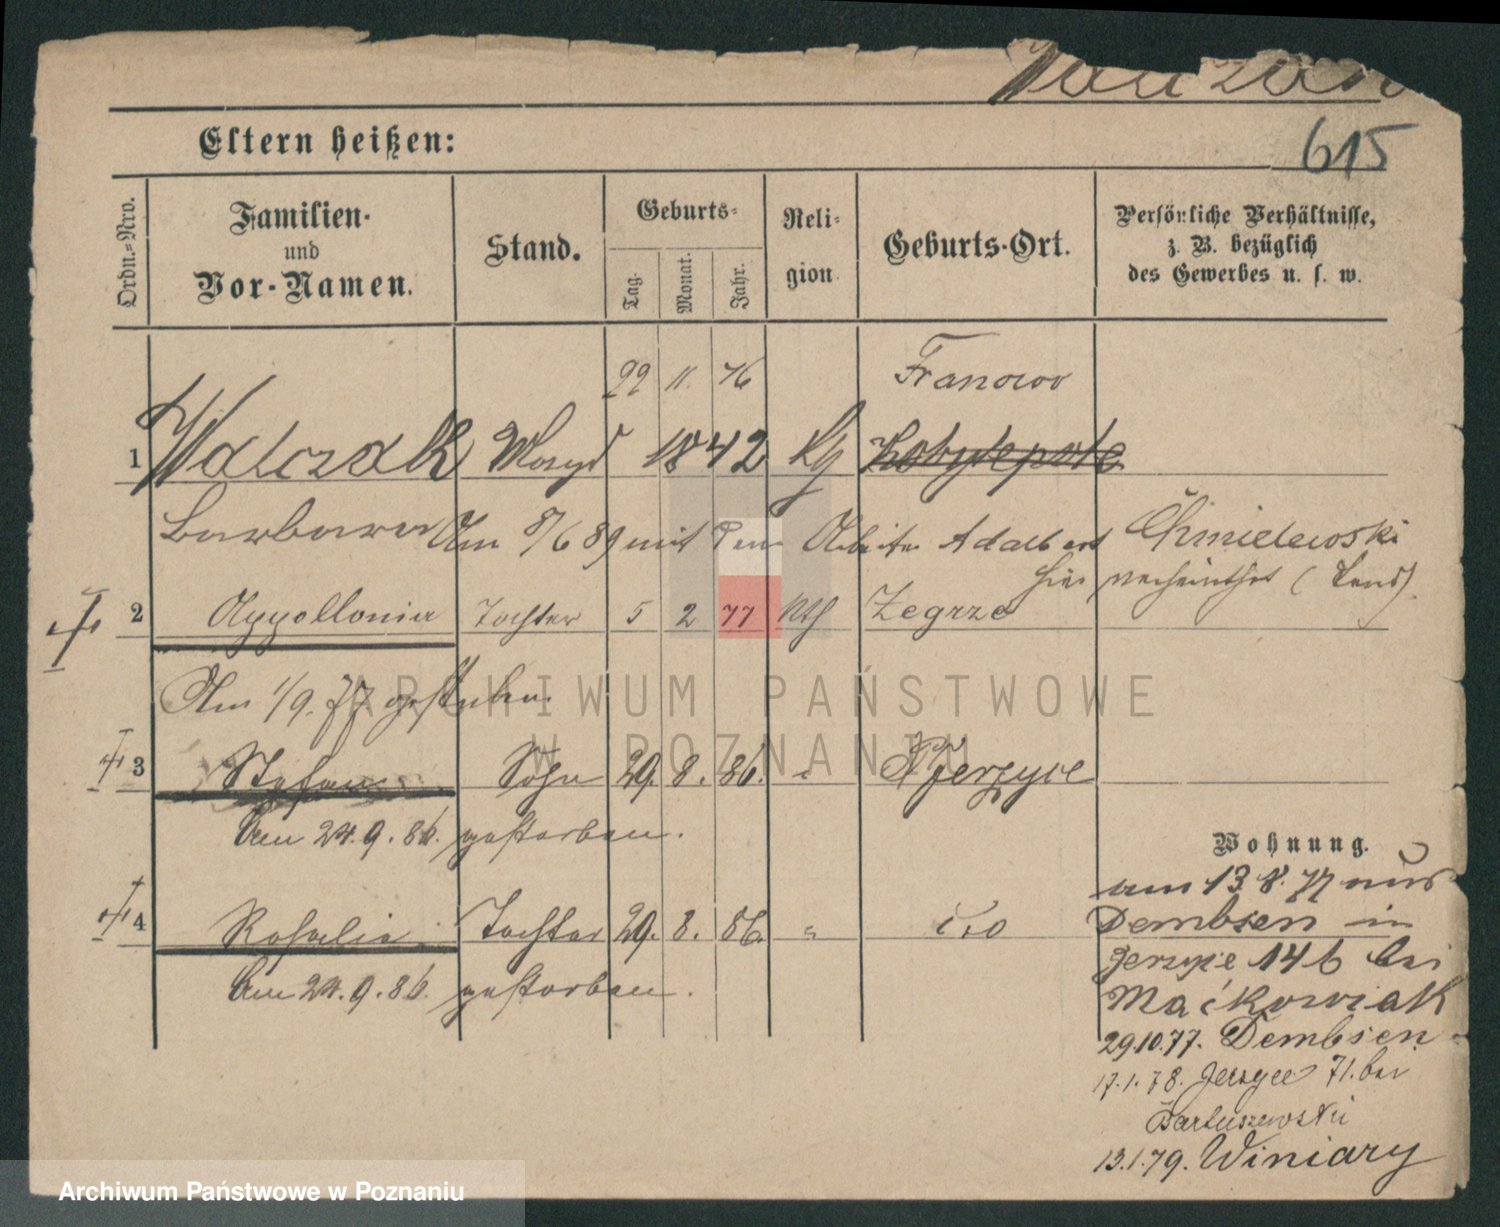 Walczak
615
Eltern heißen:
Ordn.=Nro.
Familien-
und
Vor-Namen.
Stand.
Geburts-
Tag.
Monat.
Jahr.
Reli-
gion.
Geburts-Ort.
Persönliche Verhältnisse,
z. B. bezüglich
des Gewerbes u. s. w.
22 11. 76 Franowo
1 Walczak Magd 1842 Kobylepole
Barbara Am 8/6 89 mit dem Arbeiter Adalbert Chmielewski
hier verheirathet (Land)
2 Appollonia Tochter 5 2 77 kth Zegrze
Am 1/9. 77 gestorben.
3 Stefan Sohn 29. 8. 86. " Jerzyce
Am 24.9.86. gestorben.
4 Rosalie Tochter 29. 8. 86. " do
Am 24.9.86. gestorben.
Wohnung.
am 13.8.77 aus
Dembsen in
Jerzyce 146 bei
Maćkowiak
29.10.77. Dembsen
17.1.78. Jerzyce 71. bei
Bartuszewski
13.1.79. Winiary
ARCHIWUM PAŃSTWOWE
W POZNANIU
Archiwum Państwowe w Poznaniu